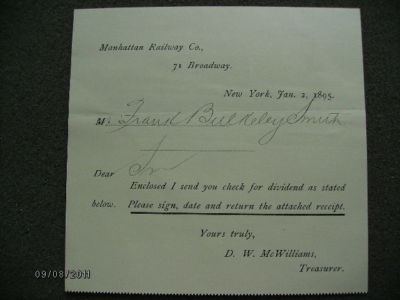 Manhattan Railway Co.,
71 Broadway.
New York, Jan. 2, 1895.
M Frank Bulkeley Smith
Dear Sir
Enclosed I send you check for dividend as stated
below. Please sign, date and return the attached receipt.
Yours truly,
D. W. McWilliams,
Treasurer.
09/08/2011